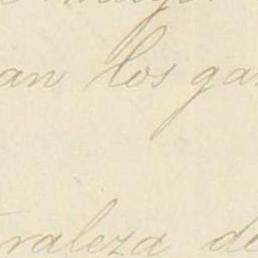 an los ga
raleza de